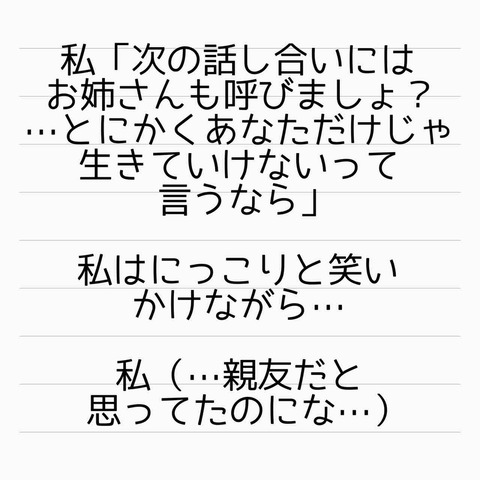 私「次の話し合いには
お姉さんも呼びましょ？
…とにかくあなただけじゃ
生きていけないって
言うなら」
私はにっこりと笑い
かけながら…
私（…親友だと
思ってたのにな…）